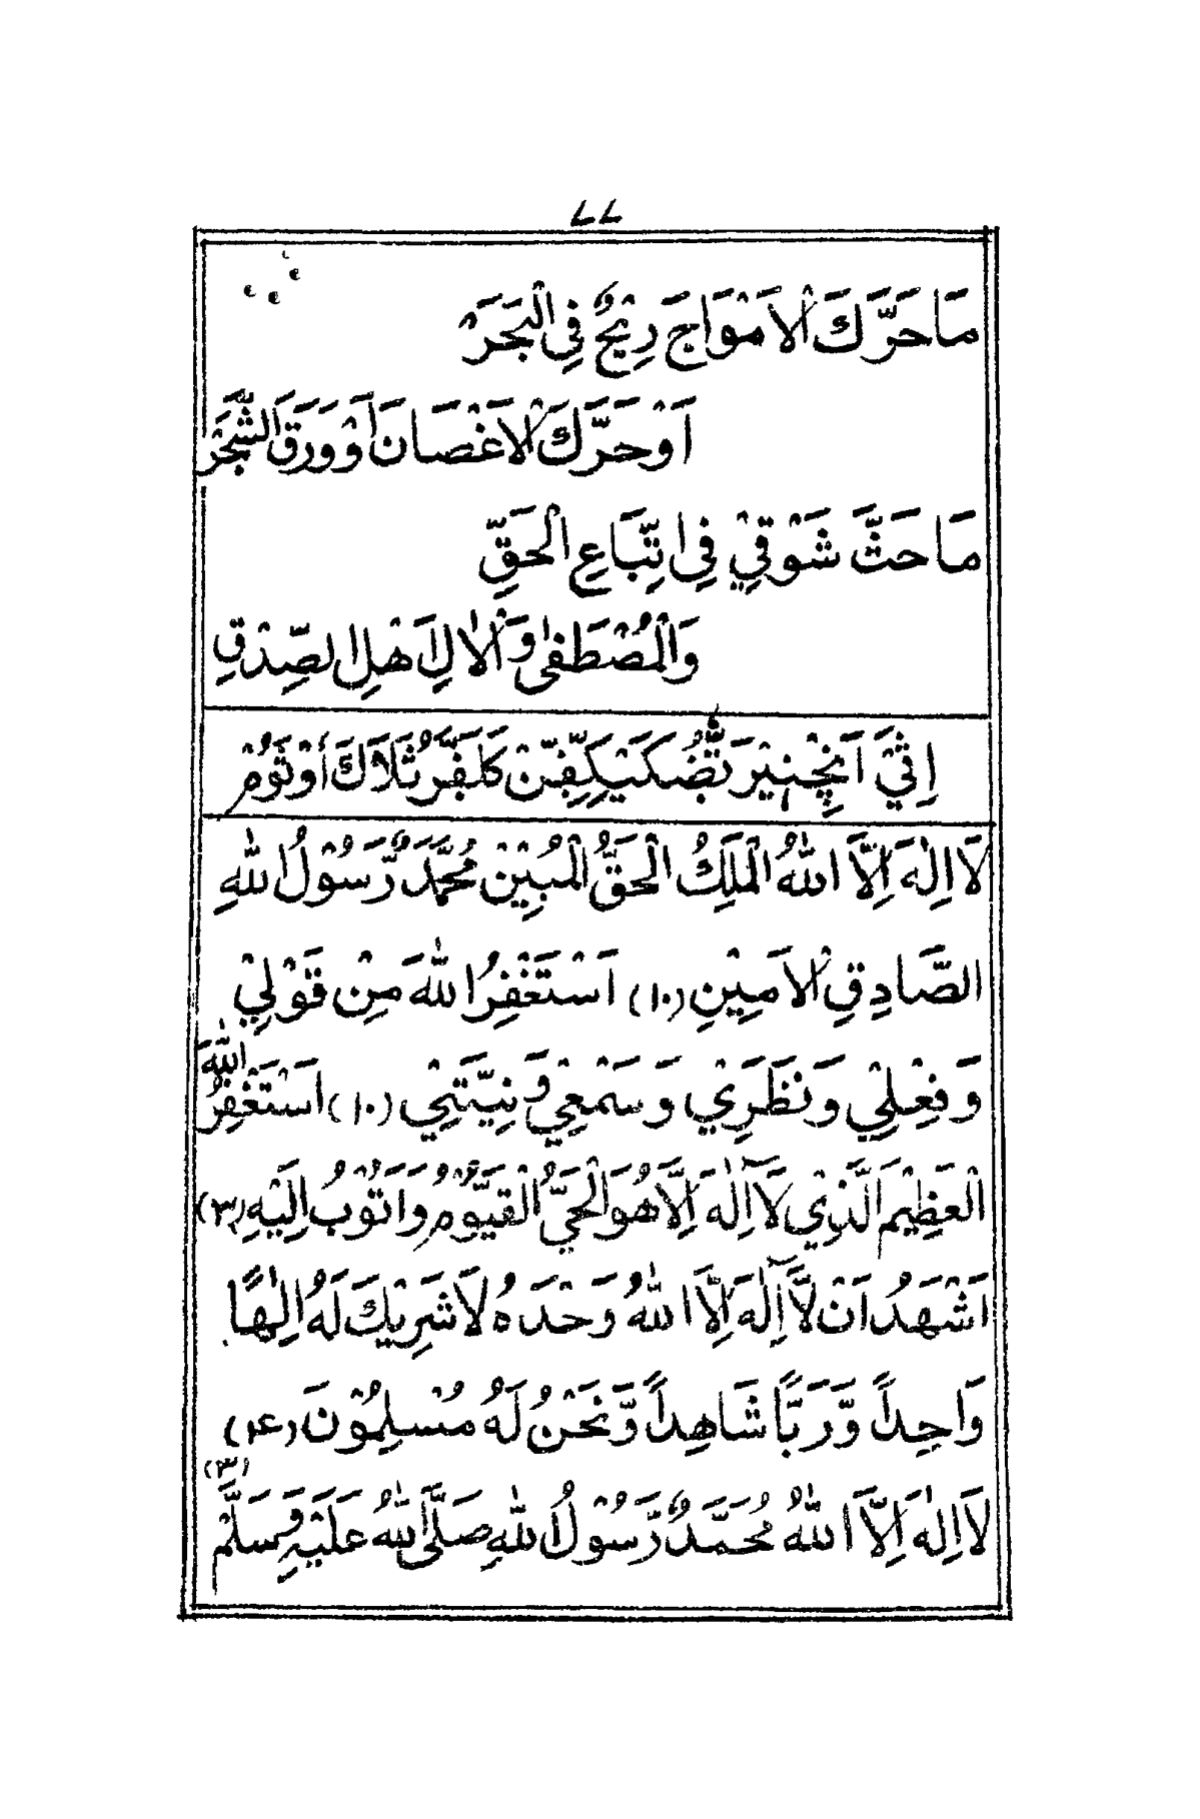 ٧٧
مَا حَرَّكَ الْاَمْوَاجَ رِيْحٌ فِي الْبَحَرْ
اَوْ حَرَّكَ الْاَغْصَانَ اَوْ وَرَقَ الشَّجَرْ
مَا حَثَّ شَوْقِيْ فِي اتِّبَاعِ الْحَقِّ
وَالْمُصْطَفٰى وَالْاٰلِ اَهْلِ الصِّدْقِ
اِثيَّ
لَا اِلٰهَ اِلَّا اللّٰهُ الْمَلِكُ الْحَقُّ الْمُبِيْنْ مُحَمَّدٌ رَّسُوْلُ اللّٰهِ
الصَّادِقِ الْاَمِيْنِ (١٠) اَسْتَغْفِرُ اللّٰهَ مِنْ قَوْلِيْ
وَفِعْلِيْ وَنَظَرِيْ وَسَمْعِيْ وَنِيَّتِيْ (١٠) اَسْتَغْفِرُ اللّٰهَ
الْعَظِيْمَ الَّذِيْ لَآ اِلٰهَ اِلَّا هُوَ الْحَيُّ الْقَيُّوْمُ وَاَتُوْبُ اِلَيْهِ (٣)
اَشْهَدُ اَنْ لَّآ اِلٰهَ اِلَّا اللّٰهُ وَحْدَهُ لَا شَرِيْكَ لَهُ اِلٰهًا
وَاحِداً وَّرَبًّا شَاهِداً وَّنَحْنُ لَهُ مُسْلِمُوْنَ (١٤)
لَا اِلٰهَ اِلَّا اللّٰهُ مُحَمَّدٌ رَّسُوْلُ اللّٰهِ صَلَّى اللّٰهُ عَلَيْهِ وَسَلَّمْ (٣)